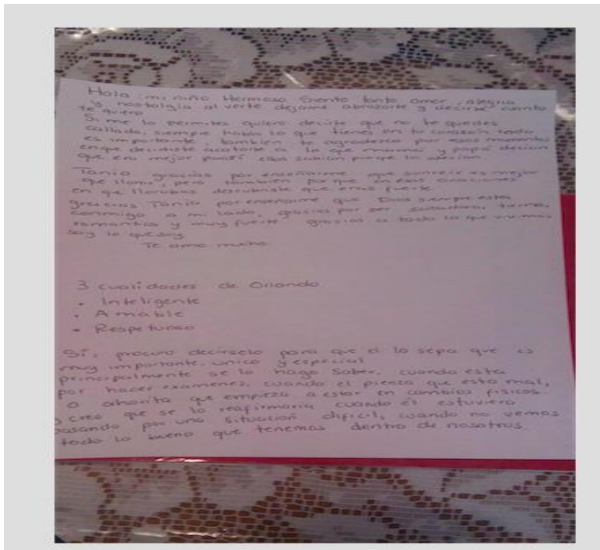 Hola mi niño Hermosa Siento tanto amor, alegria
y nostalgia al verte dejame abrazarte y decirte cuanto
te quiero
Si me lo permites quiero decirte que no te quedes
callada, siempre habla lo que tienes en tu corazón todo
es importante, tambien te agradezco por esos momentos
en que decidiste acatarte a lo que mamá y papá decian
que era mejor para ti ellos sabian porque lo decian
Tania gracias por enseñarme que sonreir es mejor
que llorar, pero tambien porque en esas ocasiones
en que llorabas descubriste que eras fuerte
gracias Tania por enseñarme que Dios siempre esta
conmigo a mi lado, gracias por ser soñadora, tierna,
romantica y muy fuerte gracias a todo lo que vivimos
soy lo que soy.
Te amo mucho
3 cualidades de Orlando
• Inteligente
• Amable
• Respetuoso
Sí, procuro decirselo para que el lo sepa que es
muy importante, unico y especial
principalmente se lo hago Saber, cuando esta
por hacer examenes, cuando el piensa que esta mal,
o ahorita que empieza a estar en cambios fisicos.
y creo que se lo reafirmaria cuando él estuviera
pasando por una situación dificil, cuando no vemos
todo lo bueno que tenemos dentro de nosotros.